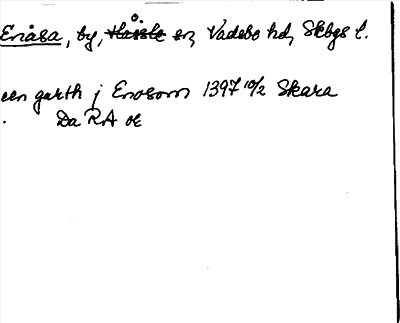 Enåsa, by, Hassle o. sn, Vadsbo hd, Skbgs l.
een garth j Enosom 1397 10/2 Skara
Da RA oc